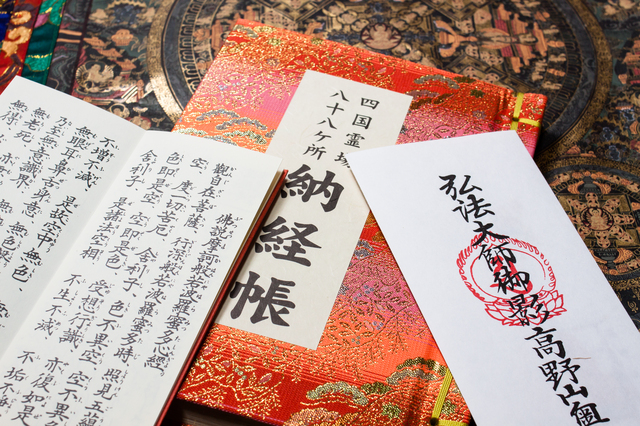 佛説摩訶般若波羅蜜多心經
観自在菩薩 行深般若波羅蜜多時 照見五蘊
空 度一切苦厄 舎利子 色不異空 空不異
色即是空 空即是色 受想行識 亦復如是
舎利子 是諸法空相 不生不滅 不垢不
不増不減 是故空中 無色
無眼耳鼻舌身意 無色
乃至無意識界 無
無老死 亦
無得
四国霊場
八十八ヶ所
納経帳
弘法大師御影 高野山奥